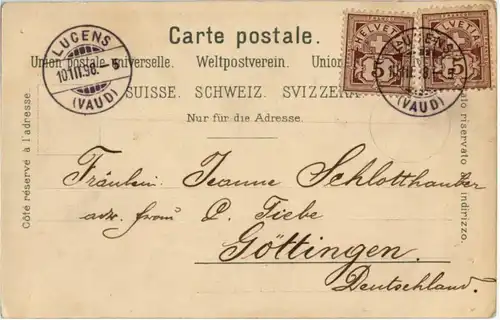 Carte postale.
Union postale universelle. Weltpostverein. Union
SUISSE. SCHWEIZ. SVIZZERA
Nur für die Adresse.
LUCENS
10.III.98. 5
(VAUD)
HELVETIA
FRANCO
5
HELVETIA
FRANCO
5
LUCENS
(VAUD)
Côté réservé à l'adresse.
lato riservato
indirizzo.
Fräulein Jeanne Schlotthauber
adr. frau P. Tiebe
Göttingen.
Deutschland.